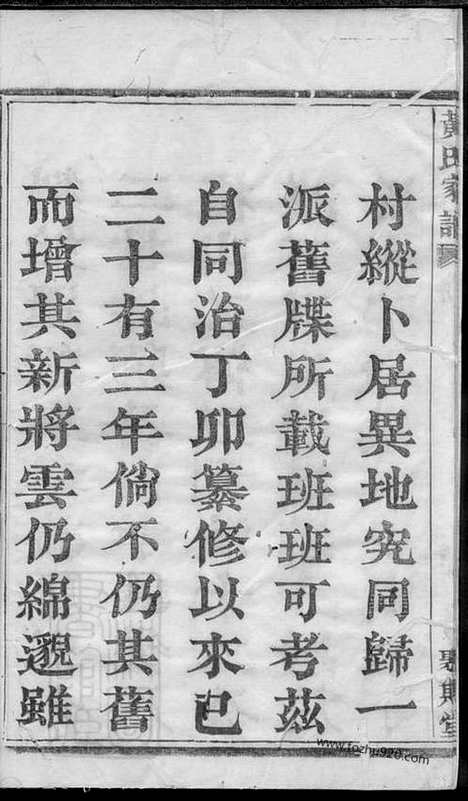 黃氏家譜
村縱卜居異地究同歸一
派舊牒所載班班可考茲
自同治丁卯纂修以來已
二十有三年倘不仍其舊
而增其新將雲仍綿邈雖
www.tozhu920.com